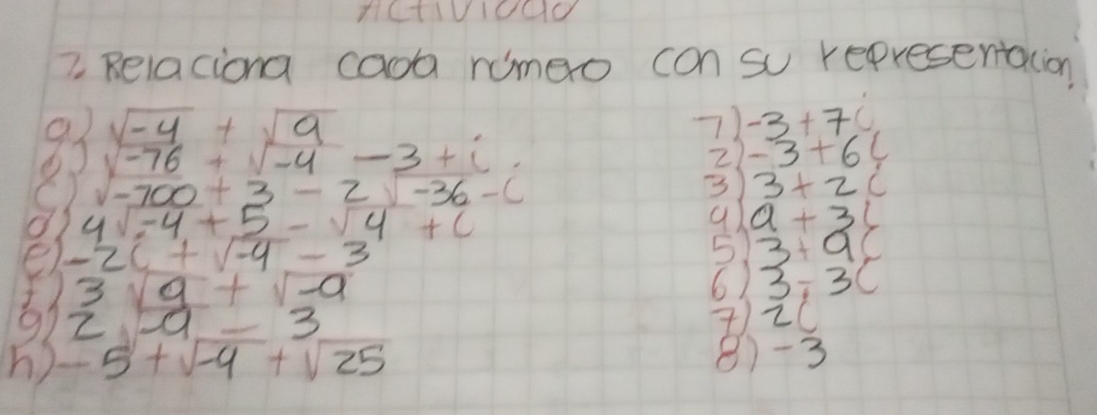 Actividad
2. Relaciona cada número con su representacion.
a) √-4 + √9
b) √-16 + √-4 - 3 + i.
c) √-100 + 3 - 2√-36 - i
d) 4√-4 + 5 - √4 + i
e) -2i + √-4 - 3
f) 3√9 + √-9
g) 2√-9 - 3
h) -5 + √-4 + √25
1) -3 + 7i
2) -3 + 6i
3) 3 + 2i
4) 9 + 3i
5) 3 + 9i
6) 3 - 3i
7) 2i
8) -3